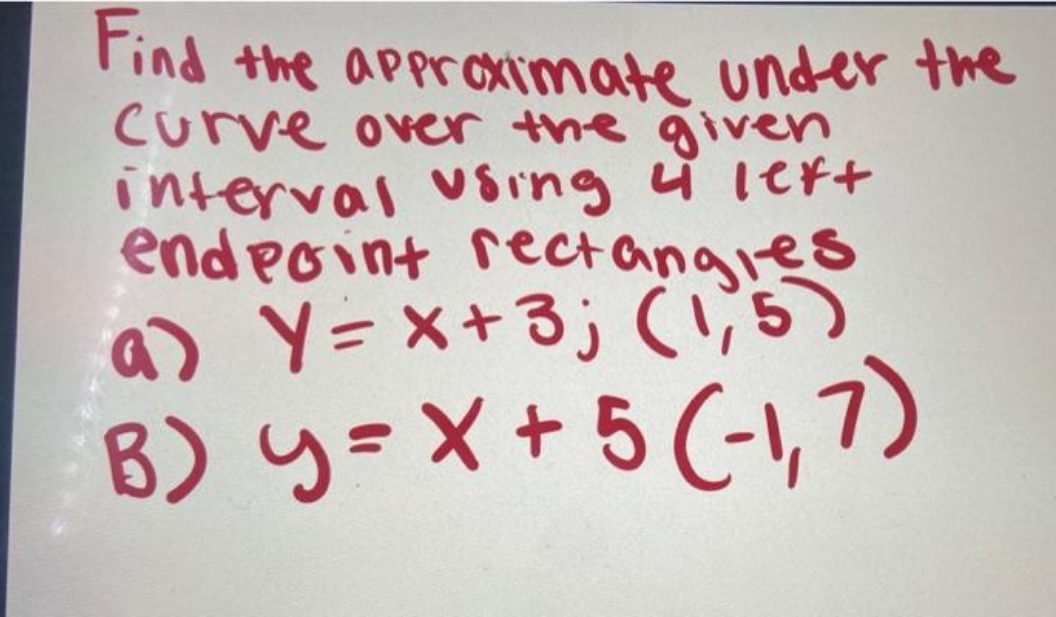 Find the approximate under the
curve over the given
interval using 4 left
endpoint rectangles
a) Y = x + 3; (1,5)
B) y = x + 5 (-1,7)